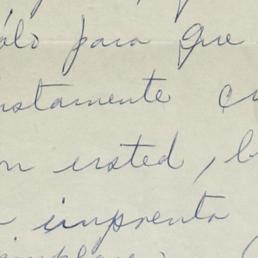 ólo para que
nstamente cu
on usted, l
imprenta